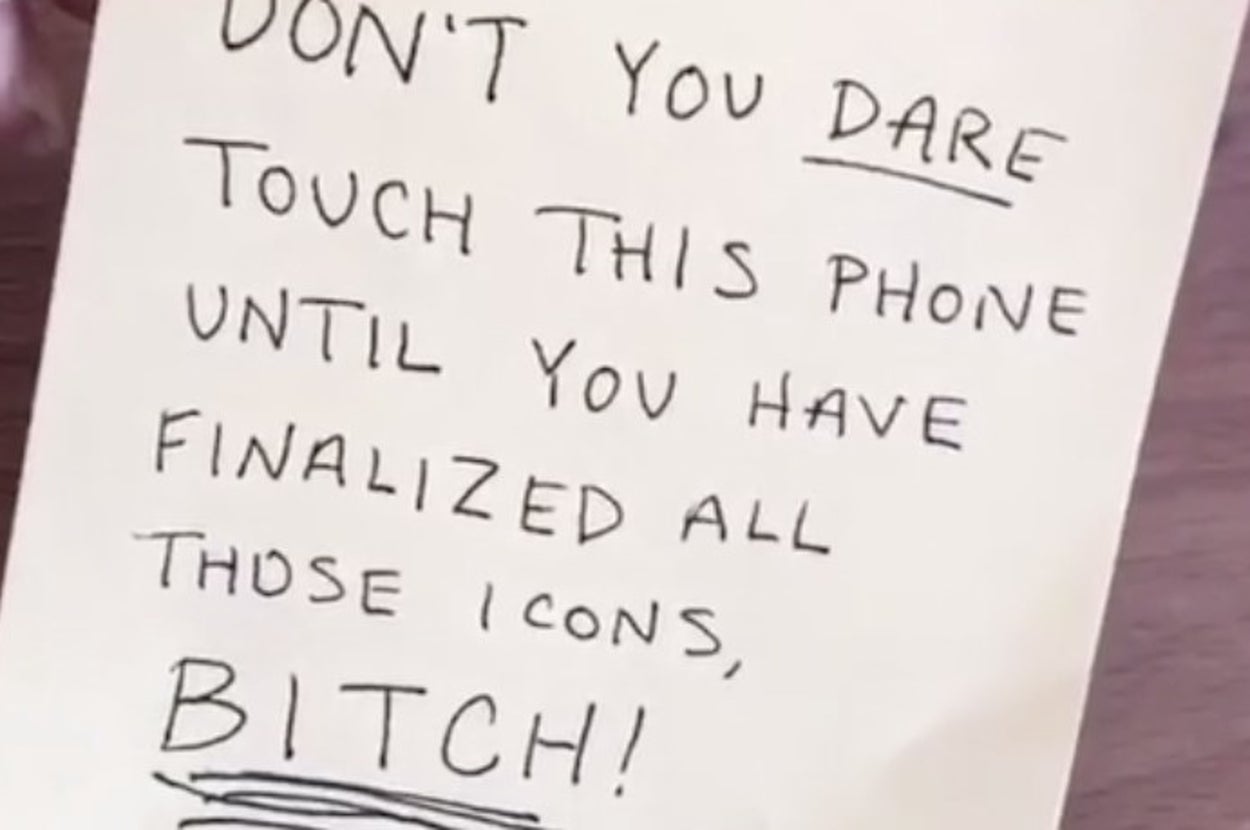 DON'T YOU DARE
TOUCH THIS PHONE
UNTIL YOU HAVE
FINALIZED ALL
THOSE ICONS,
BITCH!